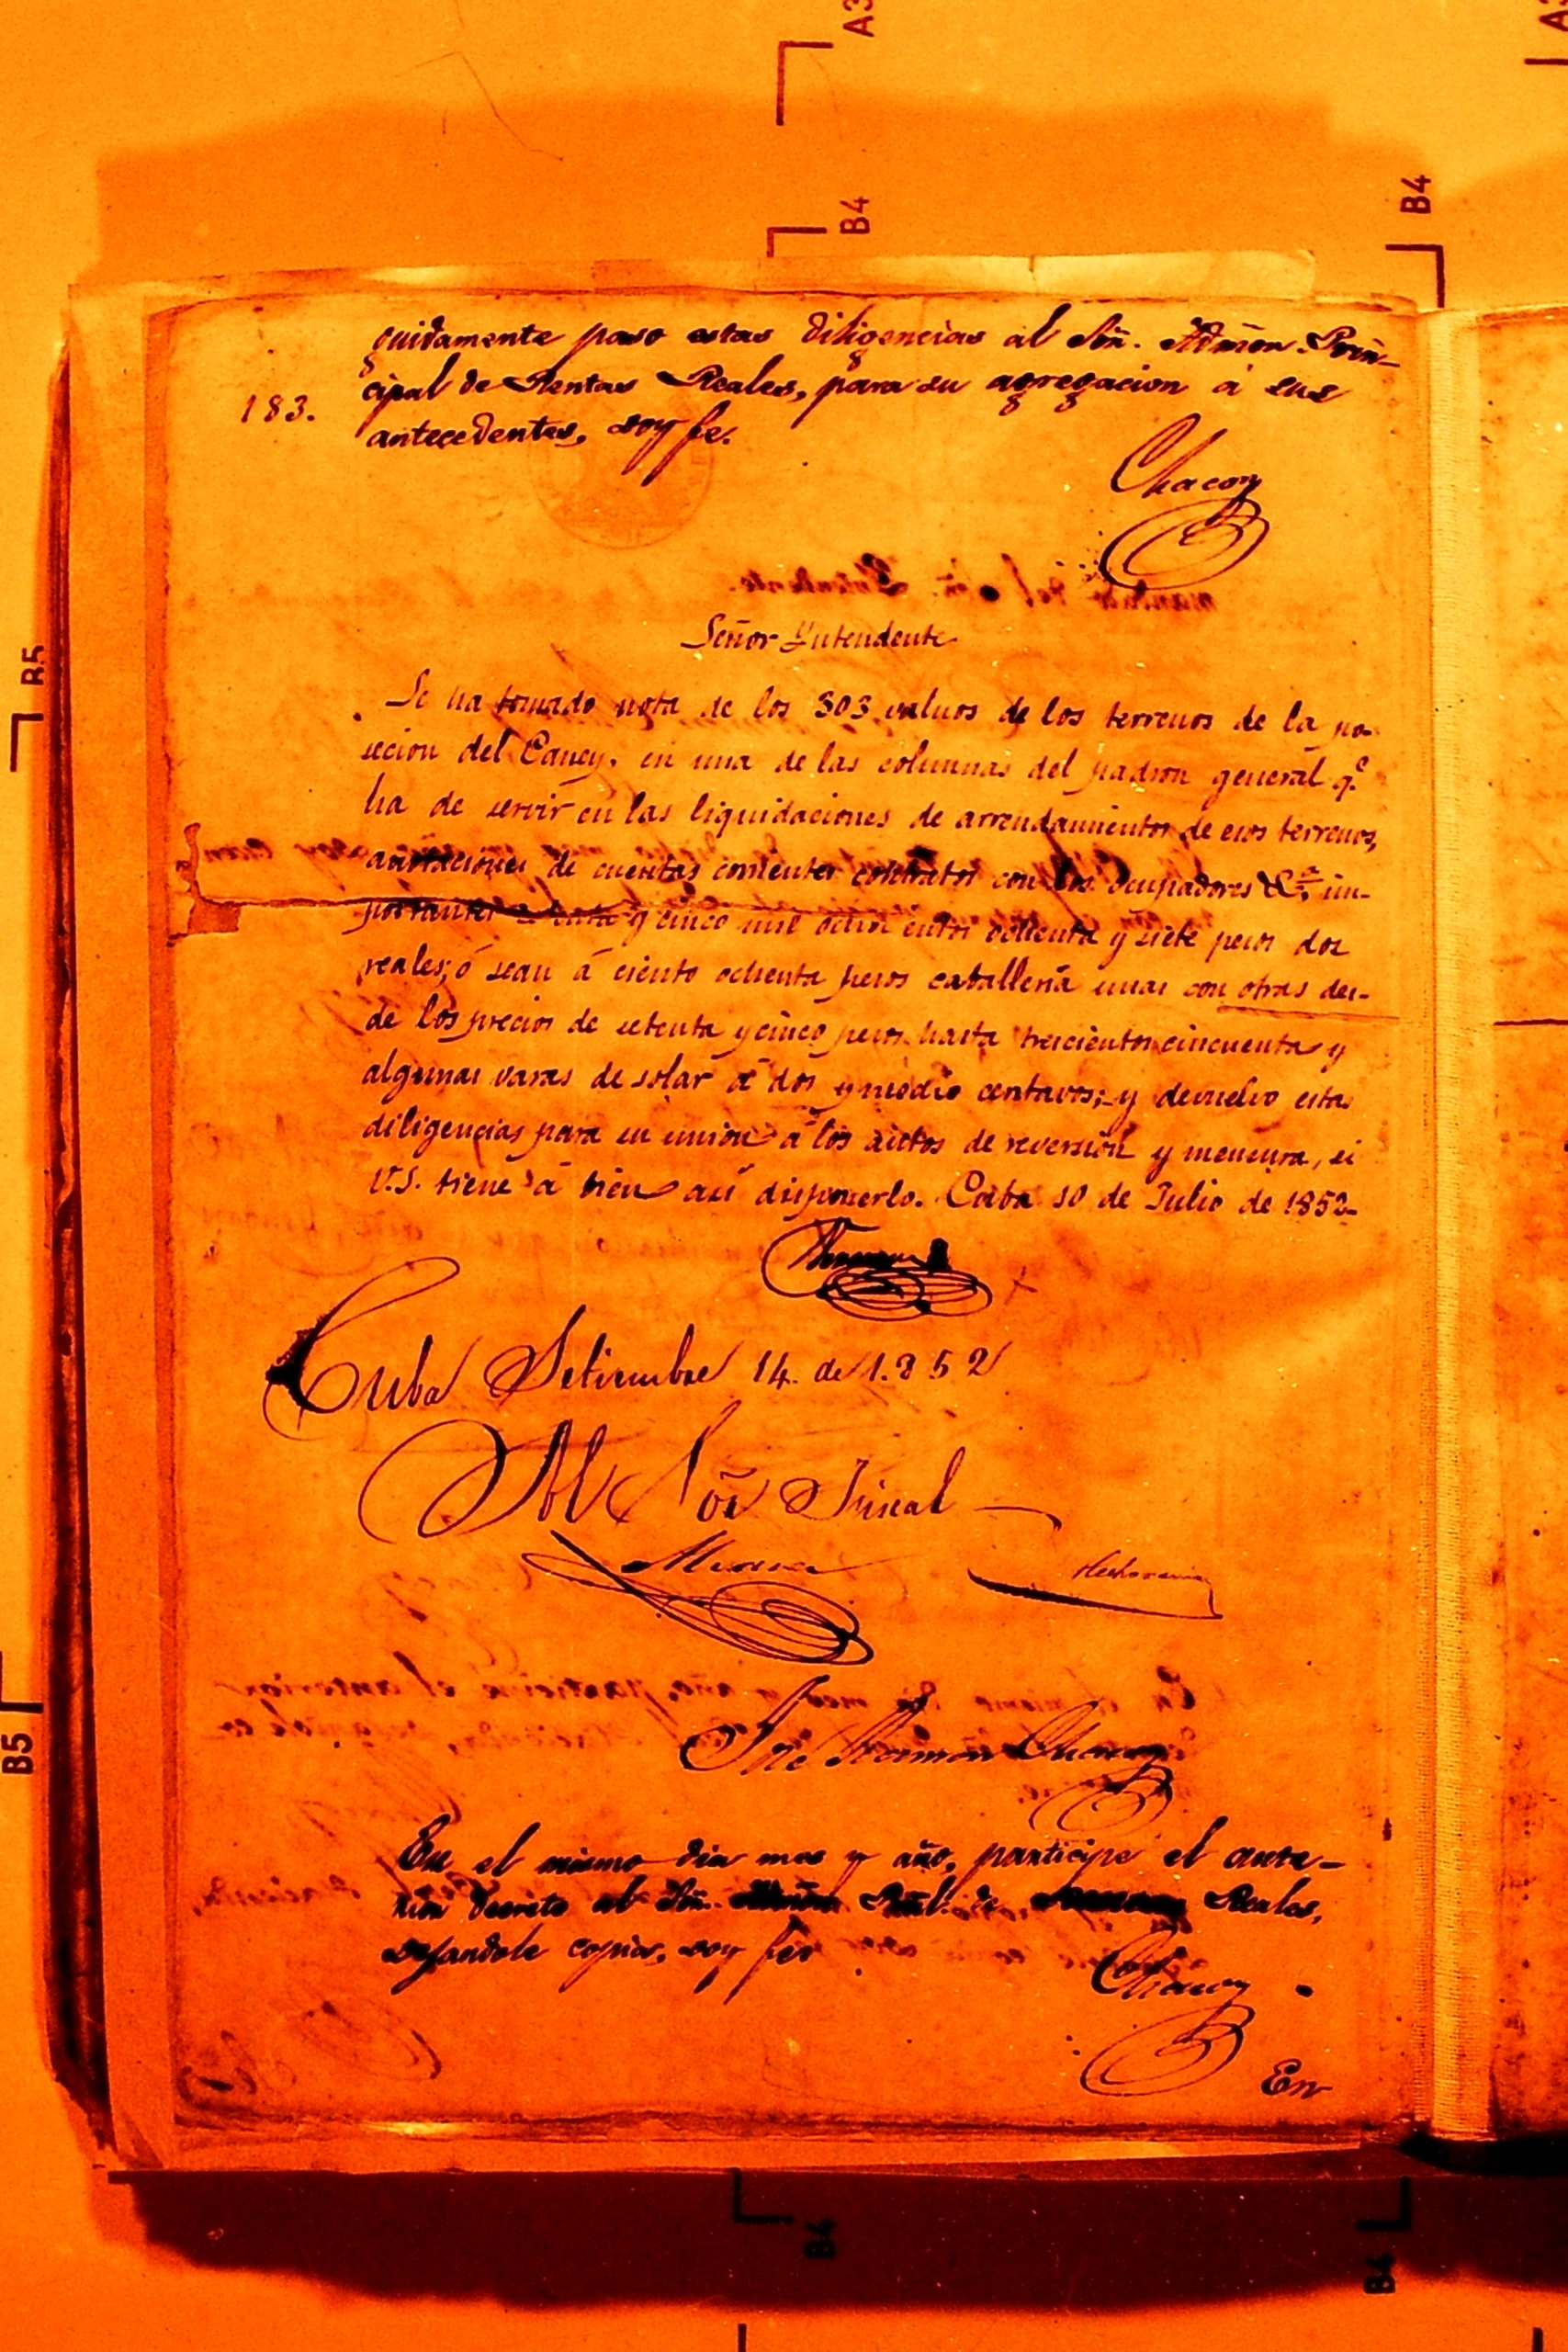 A3
A3
B4
B4
guidamente paso estas diligencias al Sõr. Admõn. Prin-
183. cipal de Rentas Reales, para su agregacion á sus
antecedentes, doy fe.
Chacon
Señor Yntendente
Se ha tomado nota de los 303 valuos de los terrenos de la po-
secion del Caney, en una de las columnas del padron general q.e
ha de servir en las liquidaciones de arrendamientos de esos terrenos,
anotaciones de cuentas corrientes contratos con los ocupadores &.a im-
portantes y cinco mil ochocientos ochenta y siete pesos dos
reales; ó sean á ciento ochenta pesos caballeria unas con otras des-
de los precios de setenta y cinco pesos hasta trescientos cincuenta y
algunas varas de solar á dos y medio centavos; y devuelvo estas
diligencias para su union á los autos de reversion y mensura, si
V.S. tiene á bien asi disponerlo. Cuba 10 de Julio de 1852-
Cuba Setiembre 14. de 1.852
Al Sõr Fiscal
José Ramon Chacon
En el mismo dia mes y año, participé el ante-
rior decreto al Sõr. de Reales,
dejandole copia, doy fe
Chacon
En
B5
B5
B4
B4